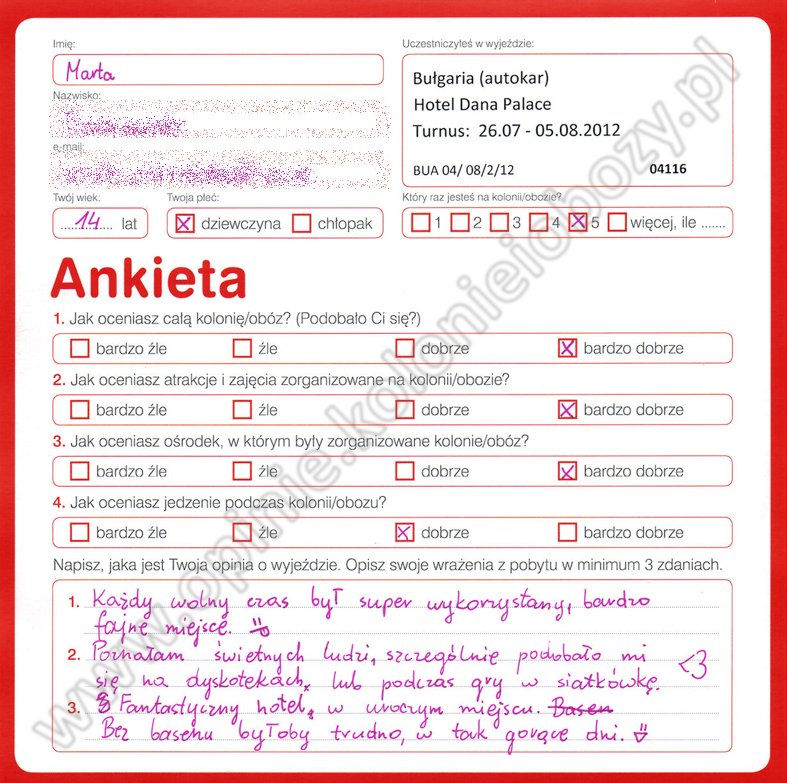 Imię:
Uczestniczyłeś w wyjeździe:
Marta
Bułgaria (autokar)
Nazwisko:
Hotel Dana Palace
Turnus: 26.07 - 05.08.2012
e-mail:
BUA 04/ 08/2/12 04116
Twój wiek:
Twoja płeć:
Który raz jesteś na kolonii/obozie?
14 lat
dziewczyna chłopak
1 2 3 4 5 więcej, ile .......
Ankieta
1. Jak oceniasz całą kolonię/obóz? (Podobało Ci się?)
bardzo źle źle dobrze bardzo dobrze
2. Jak oceniasz atrakcje i zajęcia zorganizowane na kolonii/obozie?
bardzo źle źle dobrze bardzo dobrze
3. Jak oceniasz ośrodek, w którym były zorganizowane kolonie/obóz?
bardzo źle źle dobrze bardzo dobrze
4. Jak oceniasz jedzenie podczas kolonii/obozu?
bardzo źle źle dobrze bardzo dobrze
Napisz, jaka jest Twoja opinia o wyjeździe. Opisz swoje wrażenia z pobytu w minimum 3 zdaniach.
1. Każdy wolny czas był super wykorzystany, bardzo
fajne miejsce. :)
2. Poznałam świetnych ludzi, szczególnie podobało mi <3
się na dyskotekach, lub podczas gry w siatkówkę.
3. Fantastyczny hotel, w uroczym miejscu. Basen
Bez basenu byłoby trudno, w tak gorące dni. :)
www.opinie.kolonieiobozy.pl